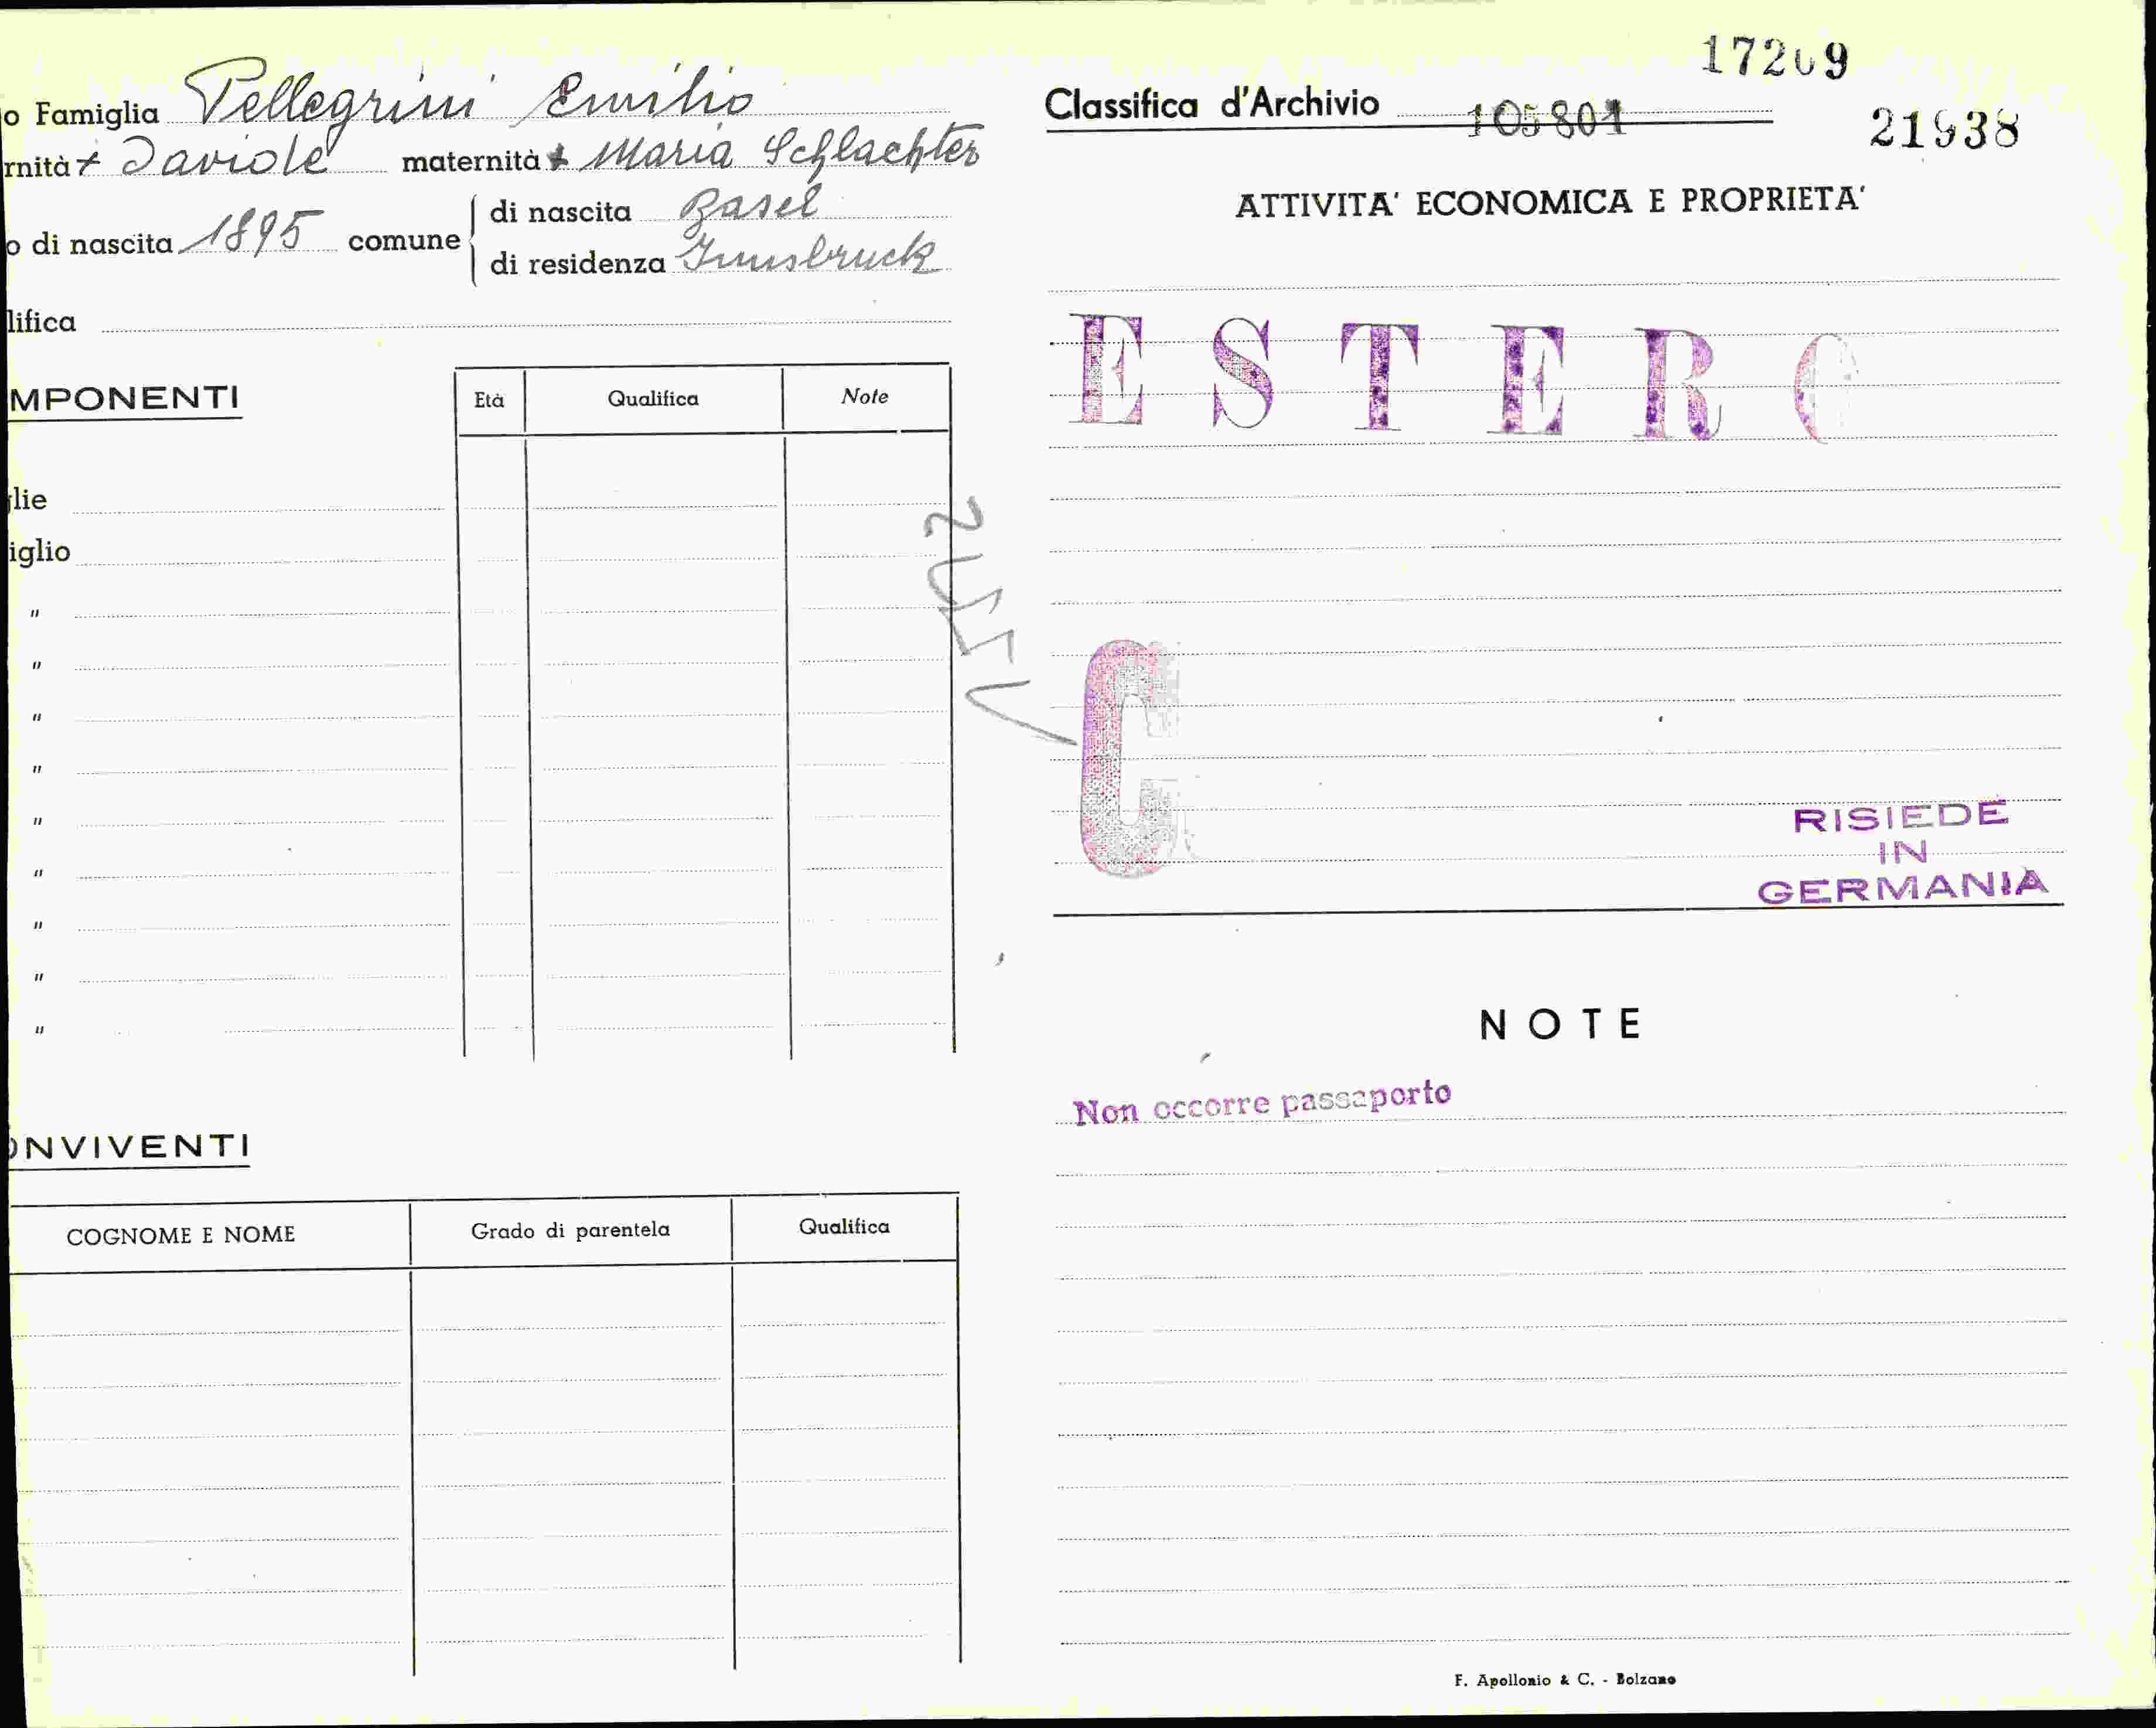 o Famiglia Pellegrini Emilio
rnità + Daviole maternità + Maria Schlachter
o di nascita 1895 comune di nascita Basel
di residenza Innsbruck
lifica
MPONENTI
Età Qualifica Note
lie
iglio
"
"
"
"
"
"
"
"
"
ONVIVENTI
COGNOME E NOME Grado di parentela Qualifica
17209
Classifica d'Archivio 105801
21938
ATTIVITA' ECONOMICA E PROPRIETA'
ESTERO
C
RISIEDE
IN
GERMANIA
NOTE
Non occorre passaporto
F. Apollonio & C. - Bolzano